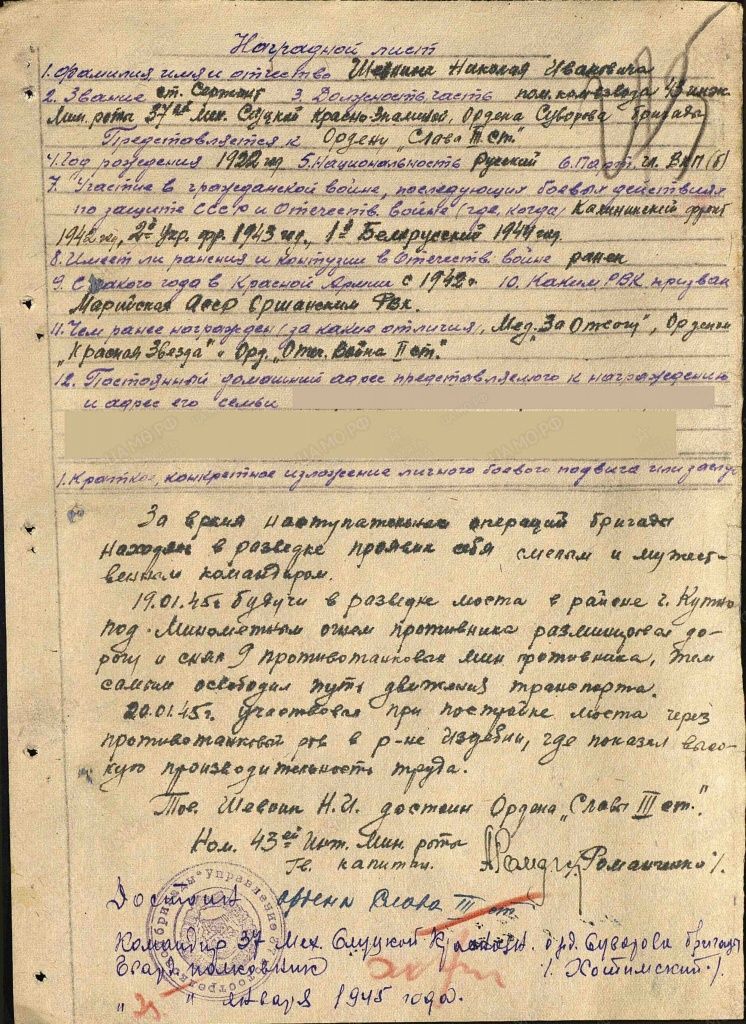 Наградной лист
1. Фамилия, имя и отчество Шевнина Николая Ивановича
2. Звание ст. Сержант 3. Должность часть пом. ком. взвода 43 инж.
Мин. роты 37ой Мех. Слуцкой Краснознаменной, Ордена Суворова бригады
Представляется к Ордену „Слава III ст."
4. Год рождения 1922 год 5. Национальность Русский 6. Парт. чл. ВКП(б)
7. Участие в гражданской войне, последующих боевых действиях
по защите СССР и Отечеств. войне (где, когда) Калининский фронт
1942 год, 2й Укр. фр. 1943 год, 1й Белорусский 1944 год.
8. Имеет ли ранения и контузии в Отечеств. войне ранен
9. С какого года в Красной Армии с 1942 г. 10. Каким РВК призван
Марийская АССР Оршанским РВК.
11. Чем ранее награжден (за какие отличия), Мед. „За Отвагу", Орденом
„Красная Звезда" и Орд. „Отеч. Война II ст."
12. Постоянный домашний адрес представляемого к награждению
и адрес его семьи
1. Краткое, конкретное изложение личного боевого подвига или заслуг
За время наступательных операций бригады
находясь в разведке проявил себя смелым и мужест-
венным командиром.
19.01.45г. будучи в разведке моста в районе г. Кутно
под минометным огнем противника разминировал до-
рогу и снял 9 противотанковых мин противника, тем
самым освободил путь движения транспорта.
20.01.45г. участвовал при постройке моста через
противотанковый ров в р-не Издебни, где показал высо-
кую производительность труда.
Тов. Шевнин Н.И. достоин Ордена „Славы III ст."
Ком. 43ей Инж. Мин. роты
Гв. капитан Романченко /.
Достоин ордена Слава III ст.
Командир 37 Мех. Слуцкой Краснозн. орд. Суворова бригады
Гвард. полковник /. Хотимский /.
„ " января 1945 года.